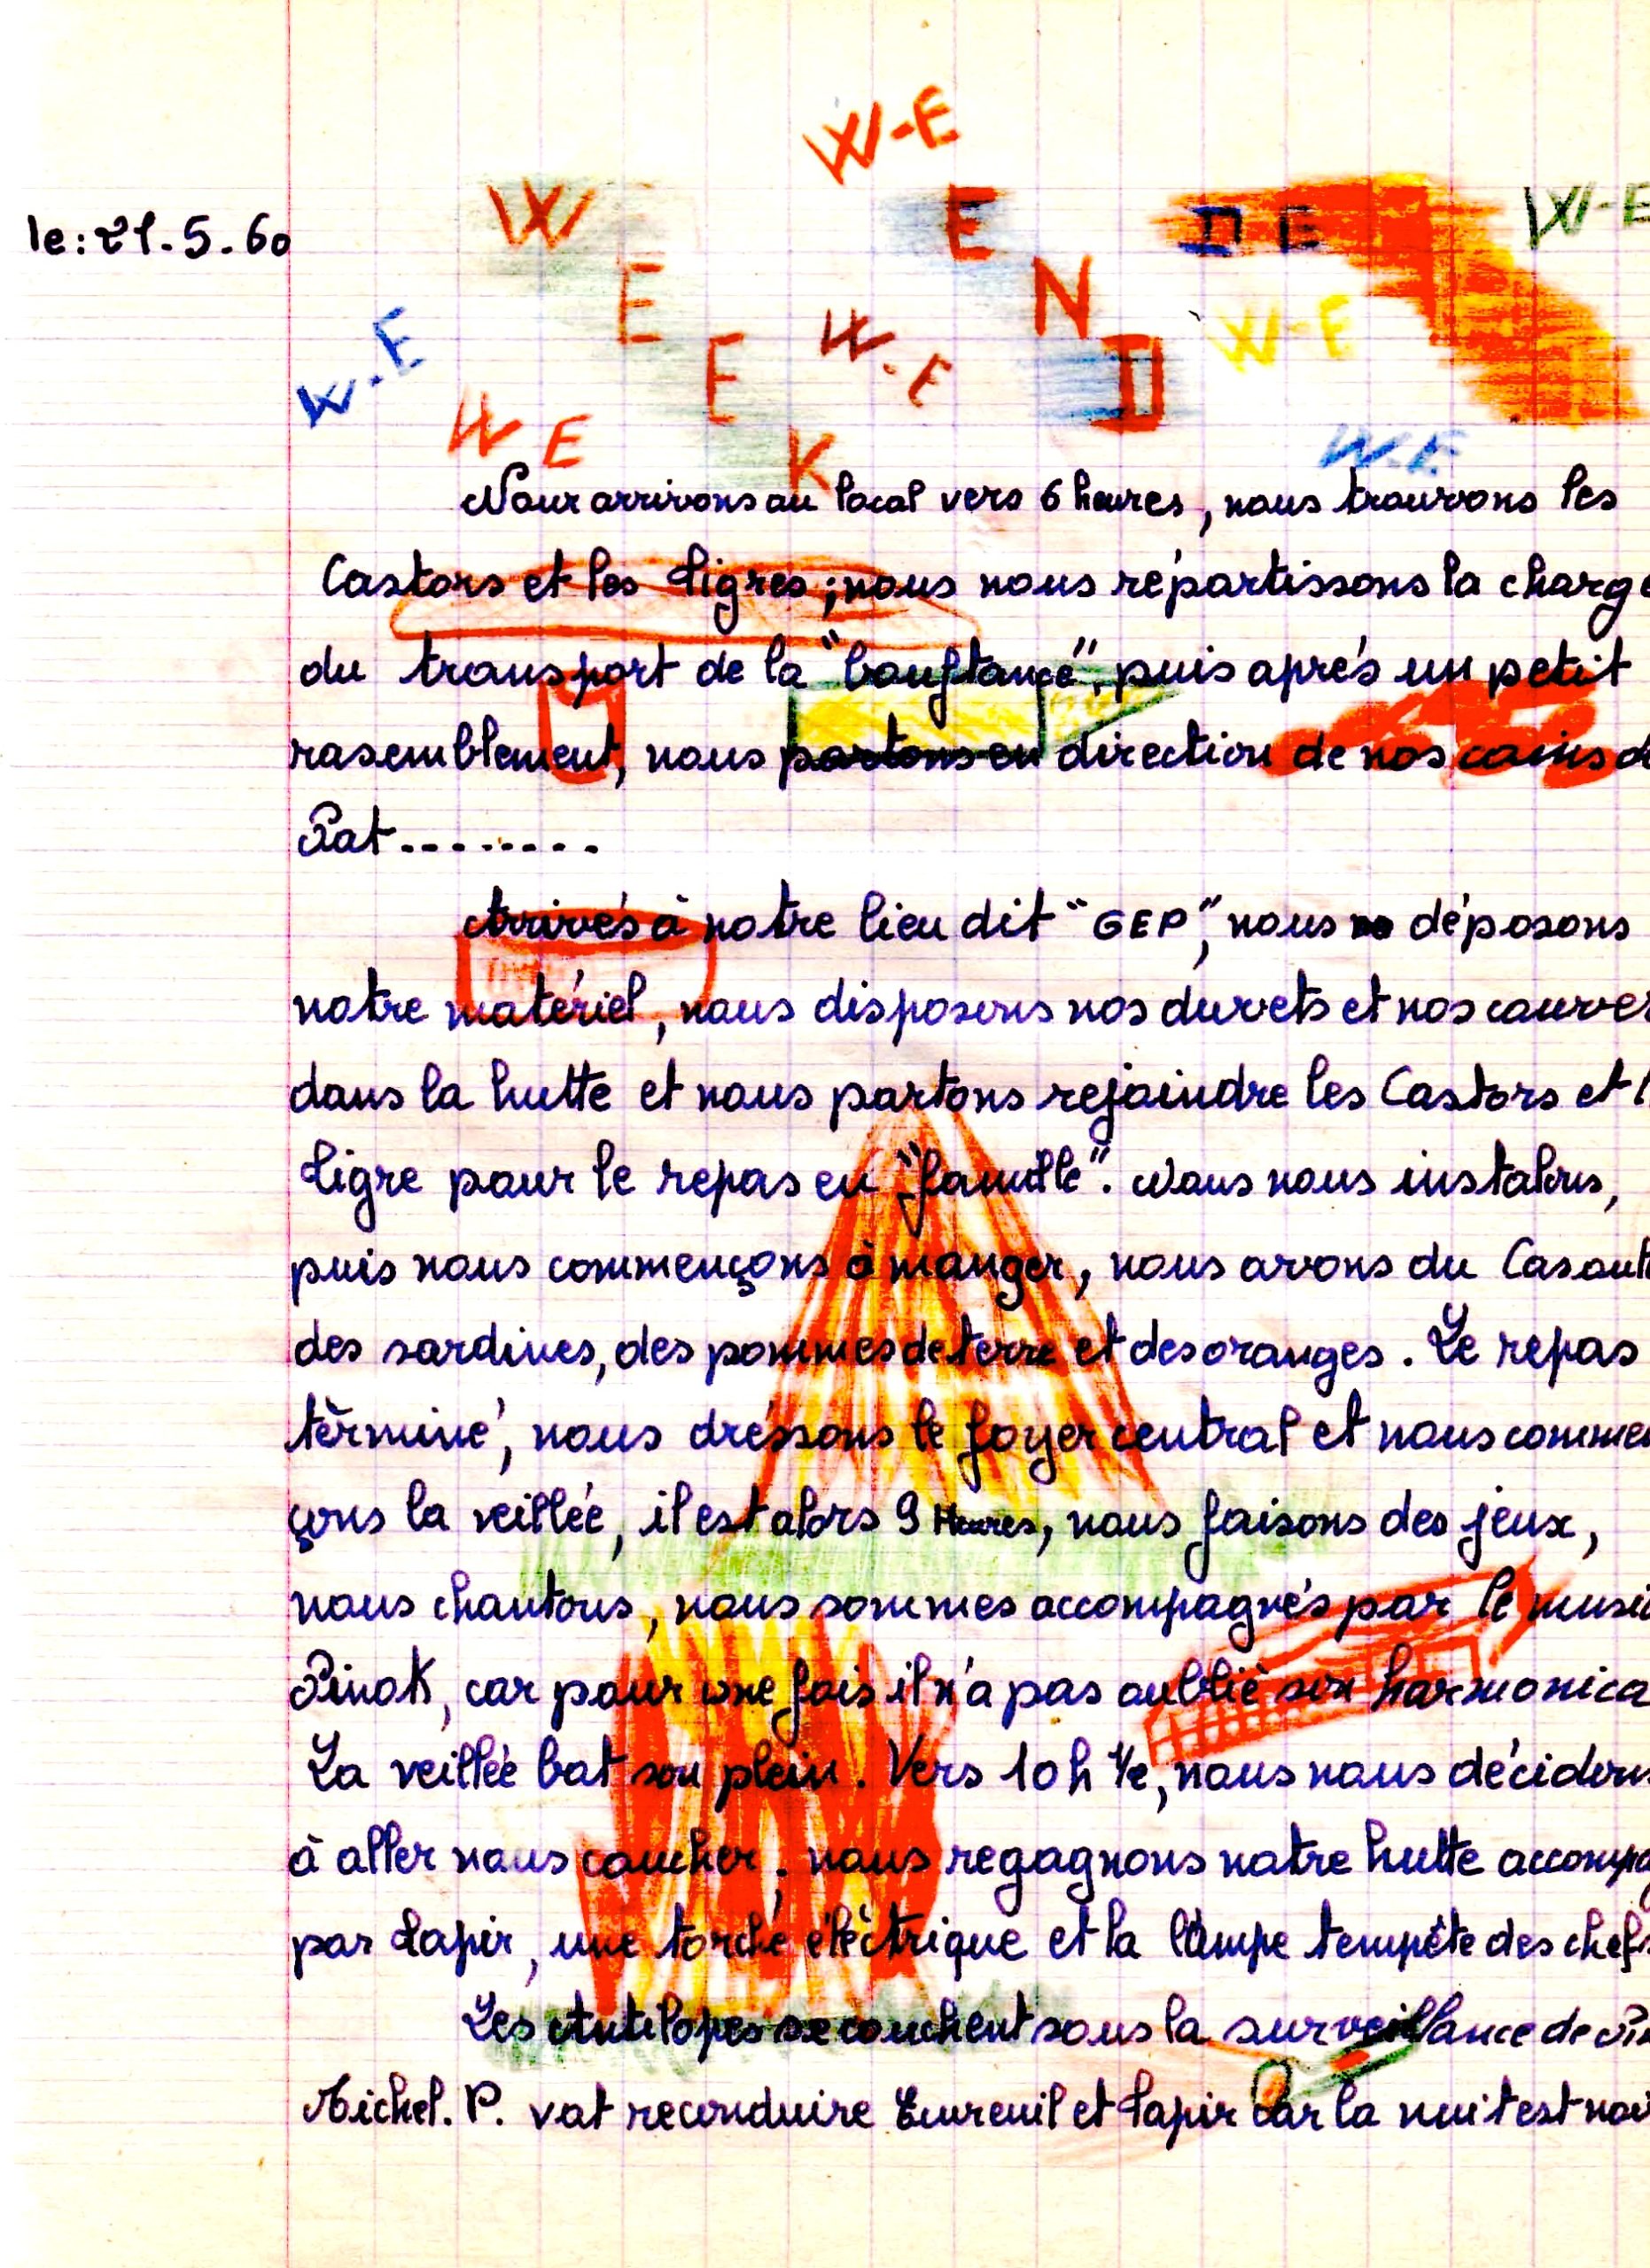 W-E
W E DE W-E
le: 21.5.60
E N
W.E E W-E D W-E
W E K W.E
Nous arrivons au local vers 6 heures, nous trouvons les
Castors et les Tigres; nous nous répartissons la charge
du transport de la "bouftance", puis aprés un petit
rasemblement, nous partons en direction de nos coins d
Pat.........
Arrivés à notre lieu dit "GEP", nous déposons
notre matériel, nous disposons nos duvets et nos couver
dans la hutte et nous partons rejoindre les Castors et l
Tigre pour le repas en "famille". Nous nous instalons,
puis nous commençons à manger, nous avons du Casoul
des sardines, des pommes de terre et des oranges. Le repas
términé, nous dréssons le foyer central et nous commen
çons la veillée, il est alors 9 Heures, nous faisons des jeux,
nous chantons, nous sommes accompagnés par le musi
Pinok, car pour une fois il n'a pas oublié son harmonica
La veillée bat son plein. Vers 10 h 1/2, nous nous décidons
à aller nous coucher; nous regagnons notre hutte accompag
par Tapir, une torche éléctrique et la lampe tempête des chefs
Les Antilopes se couchent sous la surveillance de Pi
Michel. P. vat reconduire Eureuil et Tapir Car la nuit est noi